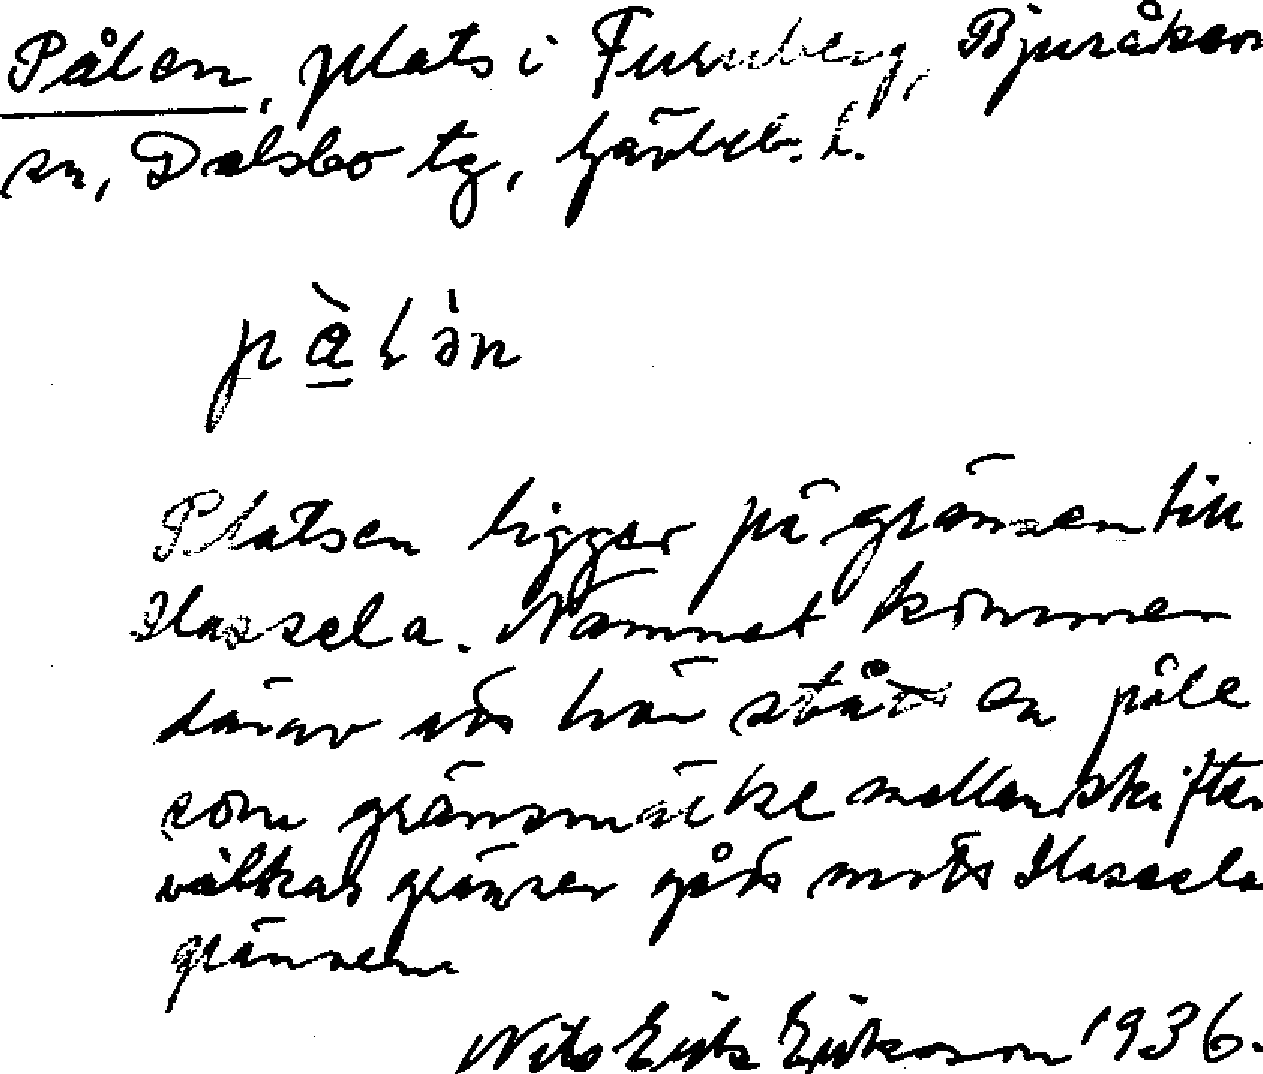 Pålen, plats i Furuberg, Bjuråkers
sn, Delsbo tg, Gävleb. l.
pàlən
Platsen ligger på gränsen till
Hassela. Namnet kommer
därav att här stått en påle
som gränsmärke mellan skiften
vilkas gränser gått mot Hassela
gränsen
Nils Erik Eriksson 1936.